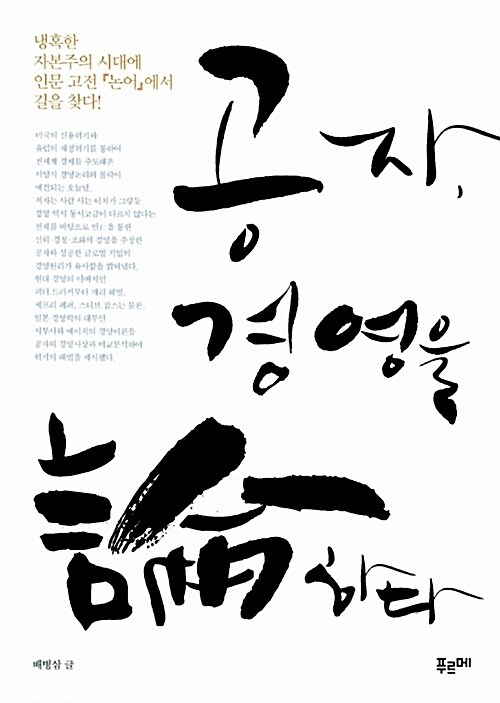 냉혹한
자본주의 시대에
인문 고전 『논어』에서
길을 찾다!
미국의 신용위기와
유럽의 재정위기를 통하여
전세계 경제를 주도해온
서양식 경영논리의 몰락이
예견되는 오늘날,
저자는 사람 사는 이치가 그렇듯
경영 역시 동서고금이 다르지 않다는
전제를 바탕으로 인仁을 통한
신뢰·경청·조화의 경영을 주장한
공자와 성공한 글로벌 기업의
경영원리가 유사함을 밝혀냈다.
현대 경영의 아버지인
피터 드러커부터 게리 해멀,
제프리 페퍼, 스티브 잡스는 물론,
일본 경영학의 대부인
시부사와 에이치의 경영이론을
공자의 경영사상과 비교분석하여
위기의 해법을 제시했다.
공자,
경영을
論하다
배병삼 글
푸르메